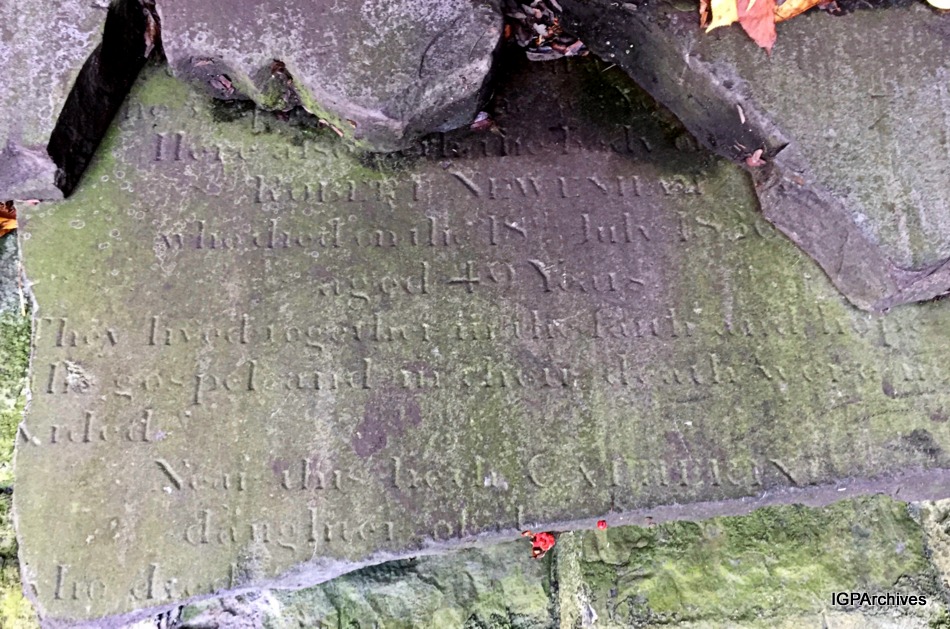 Here also the Body
ROBERT NEWENHAM
who died on the 18th July 18
aged 49 Years
They lived together in the faith and hope
the gospel and in their death were
vided
Near this lieth CATHERINE
daughter of
who died
IGPArchives